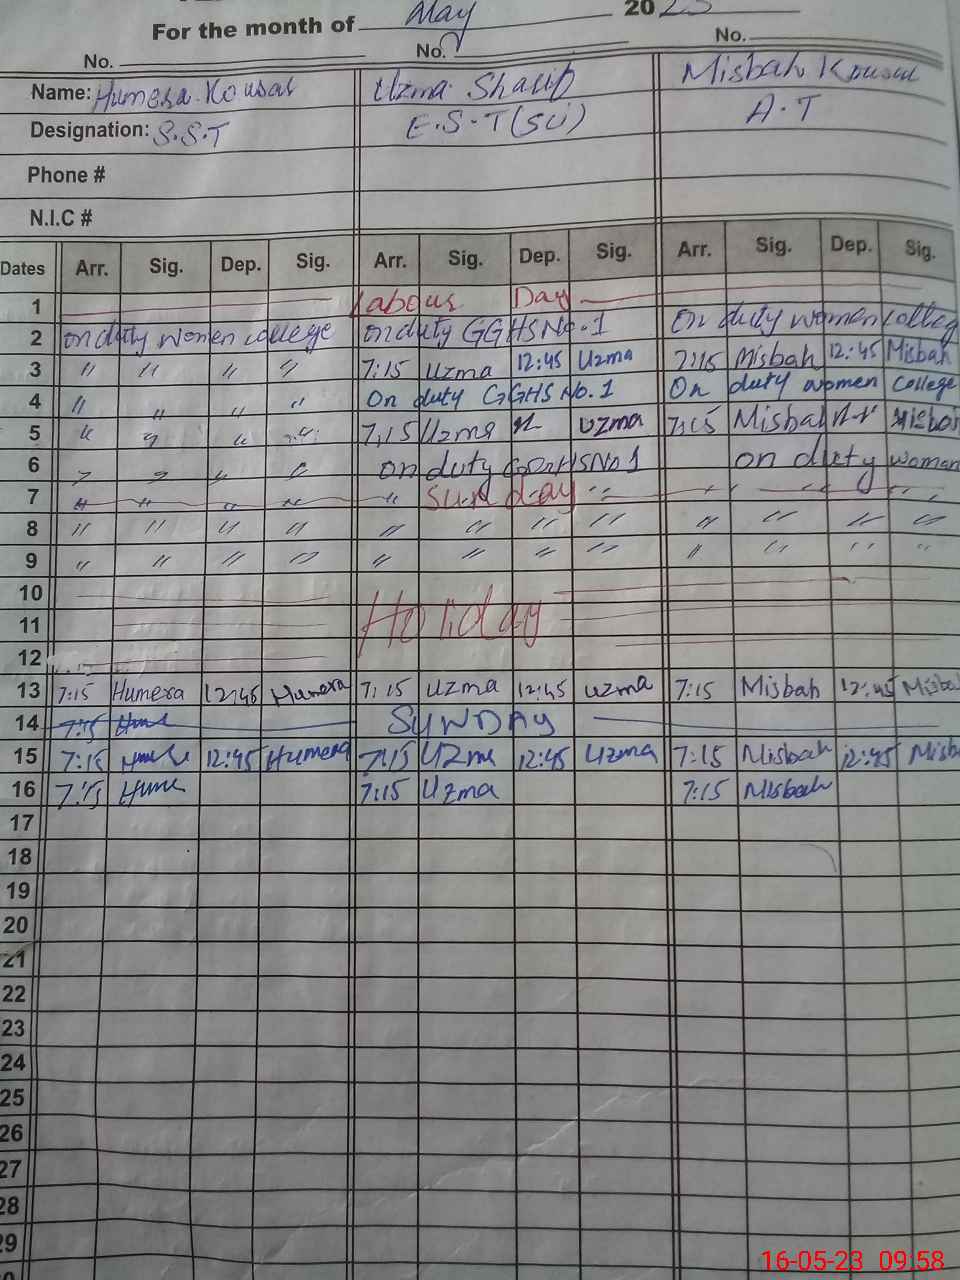 For the month of May 2023
No. No. No.
Name: Humera Kousar Uzma Sharif Misbah Kousar
Designation: S.S.T E.S.T (SU) A.T
Phone #
N.I.C #
Dates Arr. Sig. Dep. Sig. Arr. Sig. Dep. Sig. Arr. Sig. Dep. Sig.
1 Labour Day
2 on duty women college on duty GGHS No.1 On duty women colleg
3 " " " " 7:15 Uzma 12:45 Uzma 7:15 Misbah 12:45 Misbah
4 " " " " On duty GGHS No.1 On duty women College
5 " " " " 7:15 Uzma Uzma 7:15 Misbah Misbah
6 " " " " on duty GGHSNo1 on duty woman
7 " " " " " Sunday " " " " "
8 " " " " " " " " " " " "
9 " " " " " " " " " " " "
10
11 Holiday
12
13 7:15 Humera 12:45 Humera 7:15 Uzma 12:45 Uzma 7:15 Misbah 12:45 Misba
14 7:15 SUNDAY
15 7:15 12:45 Humera 7:15 Uzma 12:45 Uzma 7:15 Misbah 12:45 Misb
16 7:15 Hume 7:15 Uzma 7:15 Misbah
17
18
19
20
21
22
23
24
25
26
27
28
29
16-05-23 09:58